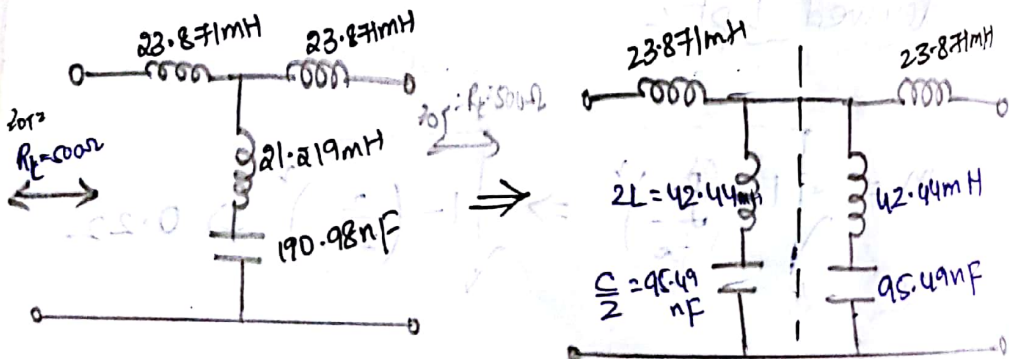 23.871mH 23.871mH
Z0T=
Rk=500Ω
21.219mH
190.98nF
Z0T = Rk = 500Ω
23.871mH 23.871mH
2L = 42.44mH
42.44mH
C/2 = 95.49 nF
95.49nF